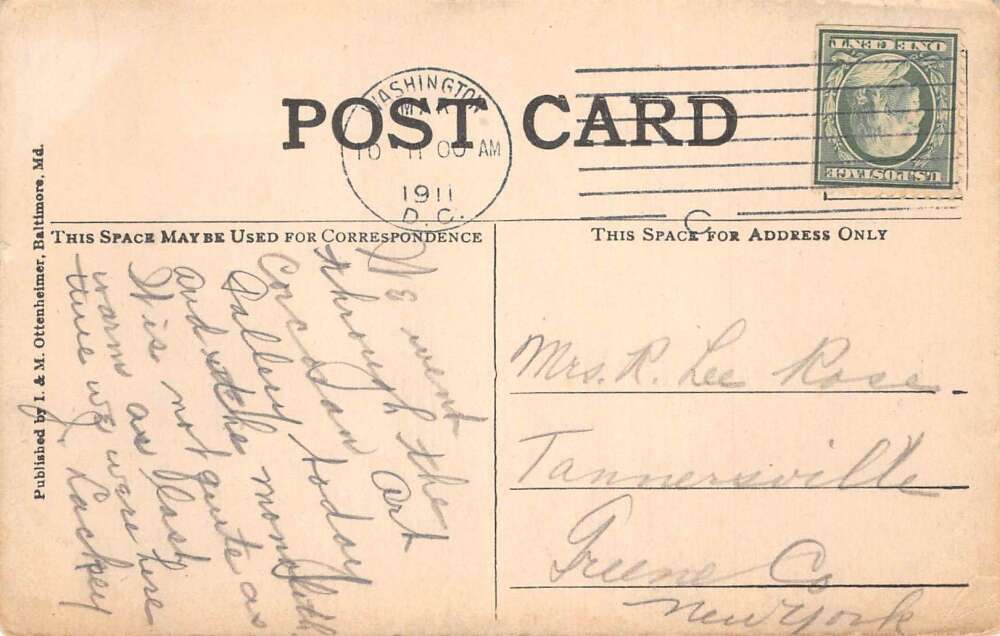 POST CARD
WASHINGTON
MAR
10 11 00 AM
1911
D.C.
C
U.S. POSTAGE
ONE CENT
THIS SPACE MAY BE USED FOR CORRESPONDENCE
THIS SPACE FOR ADDRESS ONLY
We went
through the
Corcoran Art
Gallery today
and the monolith
It is not quite as
warm as last
time we were here
J. Lackey
Mrs. R. Lee Rose
Tannersville
Greene Co
New York
Published by I. & M. Ottenheimer, Baltimore, Md.